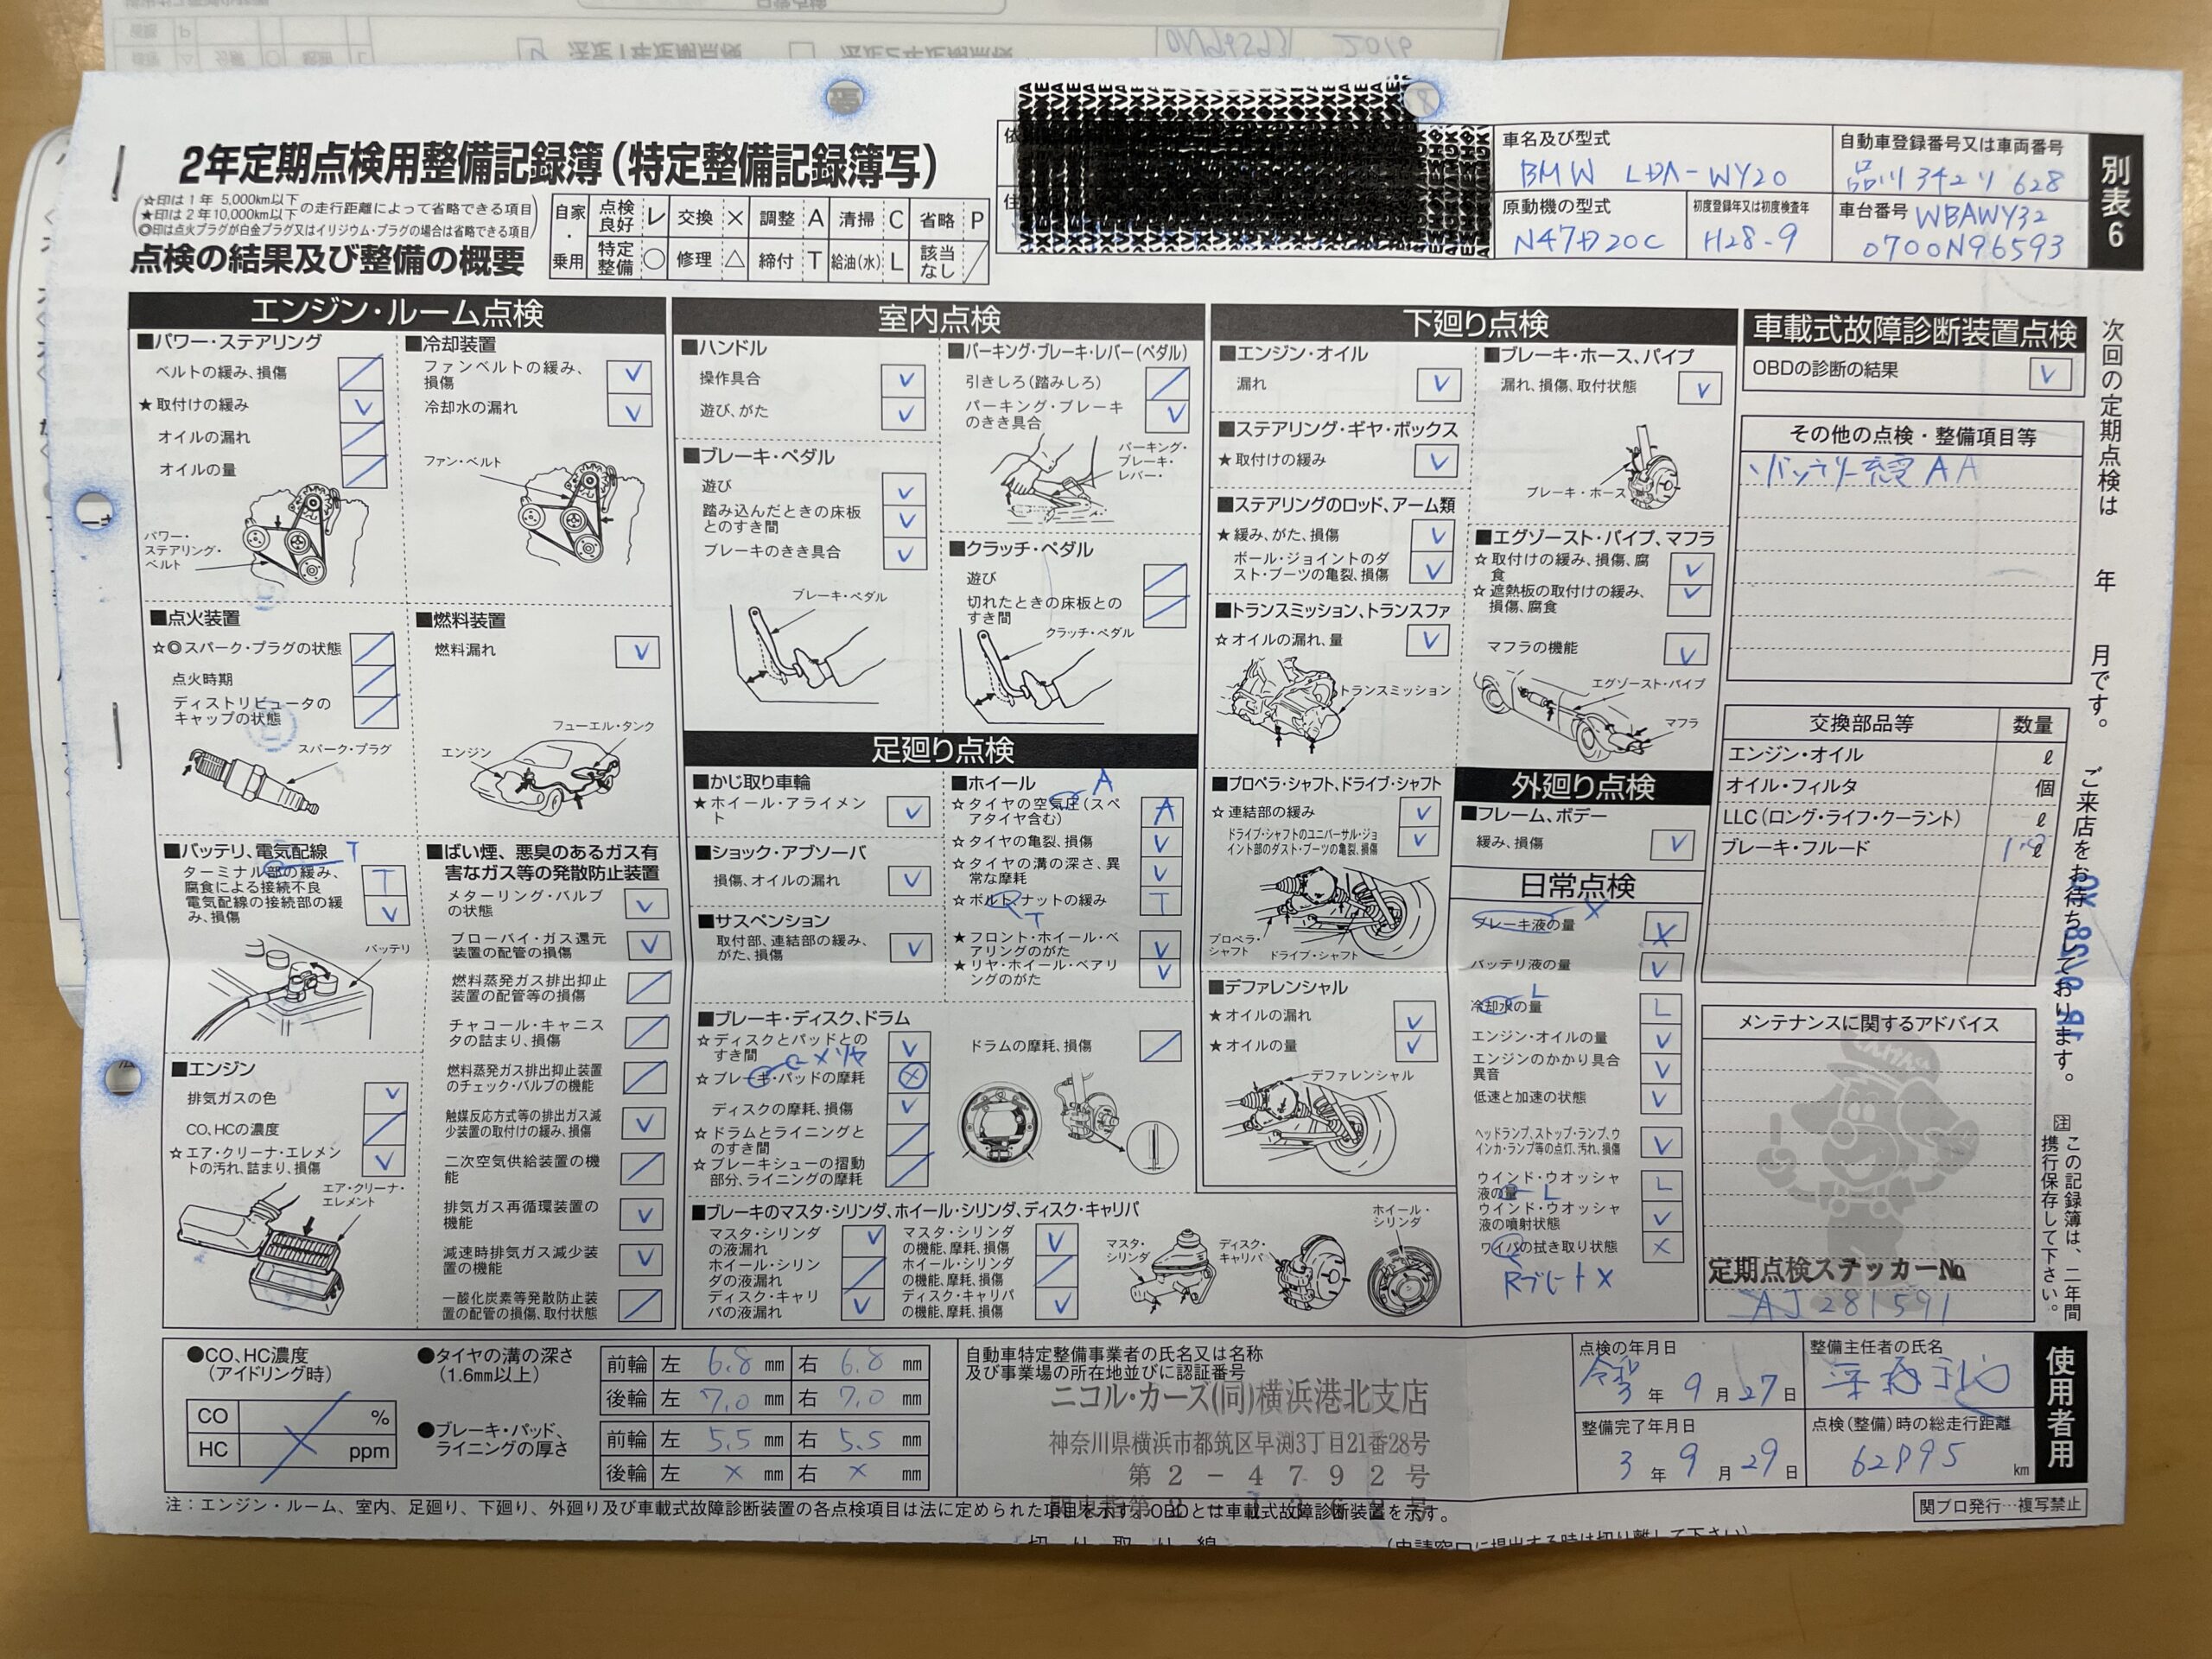 2年定期点検用整備記録簿(特定整備記録簿写)
☆印は1年 5,000km以下
★印は2年10,000km以下の走行距離によって省略できる項目
◎印は点火プラグが白金プラグ又はイリジウム・プラグの場合は省略できる項目
点検の結果及び整備の概要
自家・乗用
点検良好 レ 交換 × 調整 A 清掃 C 省略 P
特定整備 ○ 修理 △ 締付 T 給油(水) L 該当なし ╱
車名及び型式
BMW LDA-WY20
自動車登録番号又は車両番号
品川 342 リ 628
原動機の型式
N47D20C
初度登録年又は初度検査年
H28-9
車台番号 WBAWY32
0700N96593
別表6
エンジン・ルーム点検
■パワー・ステアリング
ベルトの緩み、損傷 ╱
★取付けの緩み V
オイルの漏れ ╱
オイルの量 ╱
パワー・ステアリング・ベルト
■冷却装置
ファンベルトの緩み、損傷 V
冷却水の漏れ V
ファン・ベルト
■点火装置
☆◎スパーク・プラグの状態 ╱
点火時期 ╱
ディストリビュータのキャップの状態 ╱
スパーク・プラグ
■燃料装置
燃料漏れ V
フューエル・タンク
エンジン
■バッテリ、電気配線 T
ターミナル部の緩み、腐食による接続不良 T
電気配線の接続部の緩み、損傷 V
バッテリ
■エンジン
排気ガスの色 V
CO、HCの濃度 ╱
☆エア・クリーナ・エレメントの汚れ、詰まり、損傷 V
エア・クリーナ・エレメント
■ばい煙、悪臭のあるガス有害なガス等の発散防止装置
メターリング・バルブの状態 V
ブローバイ・ガス還元装置の配管の損傷 V
燃料蒸発ガス排出抑止装置の配管等の損傷 ╱
チャコール・キャニスタの詰まり、損傷 ╱
燃料蒸発ガス排出抑止装置のチェック・バルブの機能 ╱
触媒反応方式等の排出ガス減少装置の取付けの緩み、損傷 V
二次空気供給装置の機能 ╱
排気ガス再循環装置の機能 V
減速時排気ガス減少装置の機能 V
一酸化炭素等発散防止装置の配管の損傷、取付状態 ╱
室内点検
■ハンドル
操作具合 V
遊び、がた V
■ブレーキ・ペダル
遊び V
踏み込んだときの床板とのすき間 V
ブレーキのきき具合 V
ブレーキ・ペダル
■パーキング・ブレーキ・レバー(ペダル)
引きしろ(踏みしろ) ╱
パーキング・ブレーキのきき具合 V
パーキング・ブレーキ・レバー
■クラッチ・ペダル
遊び ╱
切れたときの床板とのすき間 ╱
クラッチ・ペダル
足廻り点検
■かじ取り車輪
★ホイール・アライメント V
■ショック・アブソーバ
損傷、オイルの漏れ V
■サスペンション
取付部、連結部の緩み、がた、損傷 V
■ホイール A
☆タイヤの空気圧(スペアタイヤ含む) A
☆タイヤの亀裂、損傷 V
☆タイヤの溝の深さ、異常な摩耗 V
☆ボルト、ナットの緩み T
T
★フロント・ホイール・ベアリングのがた V
★リヤ・ホイール・ベアリングのがた V
■ブレーキ・ディスク、ドラム
☆ディスクとパッドとのすき間 V
×リヤ
☆ブレーキ・パッドの摩耗 ⊗
ディスクの摩耗、損傷 V
☆ドラムとライニングとのすき間 ╱
☆ブレーキシューの摺動部分、ライニングの摩耗 ╱
ドラムの摩耗、損傷 ╱
■ブレーキのマスタ・シリンダ、ホイール・シリンダ、ディスク・キャリパ
マスタ・シリンダの液漏れ V
ホイール・シリンダの液漏れ ╱
ディスク・キャリパの液漏れ V
マスタ・シリンダの機能、摩耗、損傷 V
ホイール・シリンダの機能、摩耗、損傷 ╱
ディスク・キャリパの機能、摩耗、損傷 V
マスタ・シリンダ
ディスク・キャリパ
ホイール・シリンダ
下廻り点検
■エンジン・オイル
漏れ V
■ステアリング・ギヤ・ボックス
★取付けの緩み V
■ステアリングのロッド、アーム類
★緩み、がた、損傷 V
ボール・ジョイントのダスト・ブーツの亀裂、損傷 V
■トランスミッション、トランスファ
☆オイルの漏れ、量 V
トランスミッション
■プロペラ・シャフト、ドライブ・シャフト
☆連結部の緩み V
ドライブ・シャフトのユニバーサル・ジョイント部のダスト・ブーツの亀裂、損傷 V
プロペラ・シャフト
ドライブ・シャフト
■デファレンシャル
★オイルの漏れ V
★オイルの量 V
デファレンシャル
■ブレーキ・ホース、パイプ
漏れ、損傷、取付状態 V
ブレーキ・ホース
■エグゾースト・パイプ、マフラ
☆取付けの緩み、損傷、腐食 V
☆遮熱板の取付けの緩み、損傷、腐食 V
マフラの機能 V
エグゾースト・パイプ
マフラ
外廻り点検
■フレーム、ボデー
緩み、損傷 V
日常点検
ブレーキ液の量 X
バッテリ液の量 V
冷却水の量 L
エンジン・オイルの量 V
エンジンのかかり具合異音 V
低速と加速の状態 V
ヘッドランプ、ストップ・ランプ、ウインカ・ランプ等の点灯、汚れ、損傷 V
ウインド・ウオッシャ液の量 L
ウインド・ウオッシャ液の噴射状態 V
ワイパの拭き取り状態 ×
車載式故障診断装置点検
OBDの診断の結果 V
その他の点検・整備項目等
交換部品等 数量
エンジン・オイル ℓ
オイル・フィルタ 個
LLC(ロング・ライフ・クーラント) ℓ
ブレーキ・フルード ℓ
メンテナンスに関するアドバイス
定期点検ステッカーNo
AJ281591
次回の定期点検は 年 月です。 ご来店をお待ちしております。
注 この記録簿は、二年間携行保存して下さい。
使用者用
●CO、HC濃度(アイドリング時)
CO %
HC ppm
●タイヤの溝の深さ(1.6mm以上)
前輪 左 6.8 mm 右 6.8 mm
後輪 左 7.0 mm 右 7.0 mm
●ブレーキ・パッド、ライニングの厚さ
前輪 左 5.5 mm 右 5.5 mm
後輪 左 × mm 右 × mm
自動車特定整備事業者の氏名又は名称及び事業場の所在地並びに認証番号
ニコル・カーズ(同)横浜港北支店
神奈川県横浜市都筑区早渕3丁目21番28号
第2-4792号
点検の年月日
令和3年9月27日
整備主任者の氏名
整備完了年月日
3年9月29日
点検(整備)時の総走行距離
km
注:エンジン・ルーム、室内、足廻り、下廻り、外廻り及び車載式故障診断装置の各点検項目は法に定められた項目を示す。OBDとは車載式故障診断装置を示す。
関ブロ発行…複写禁止
切り取り線
(申請窓口に提出する時は切り離して下さい)